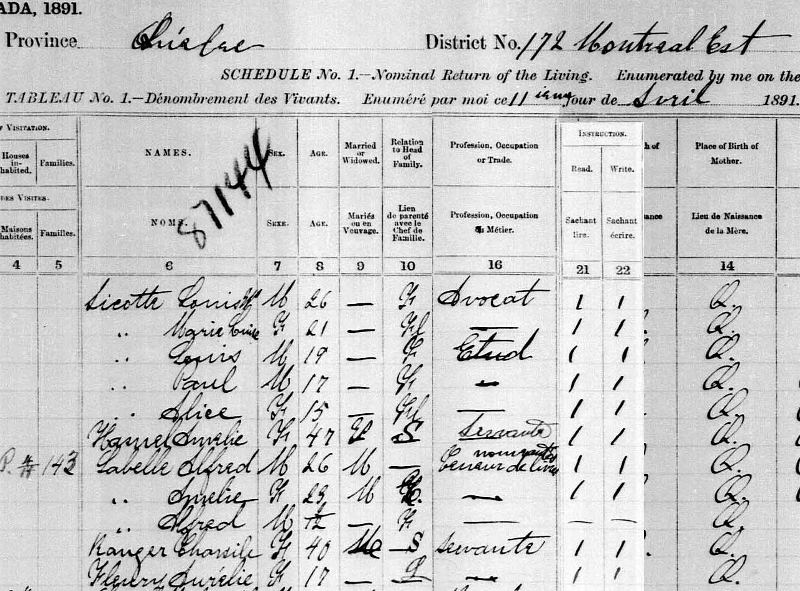 ADA, 1891.
Province Québec District No. 172 Montreal Est
SCHEDULE No. 1.—Nominal Return of the Living. Enumerated by me on the
TABLEAU No. 1.—Dénombrement des Vivants. Enuméré par moi ce 11 ieme jour de Avril 1891.
F VISITATION.
Houses in-habited. Families. NAMES. SEX. AGE. Married or Widowed. Relation to Head of Family. Profession, Occupation or Trade. INSTRUCTION. Read. Write. h of Place of Birth of Mother.
87144
DES VISITES.
Maisons habitées. Familles. NOMS. SEXE. AGE. Mariés ou en Veuvage. Lien de parenté avec le Chef de Famille. Profession, Occupation ou Métier. Sachant lire. Sachant écrire. sance Lieu de Naissance de la Mère.
4 5 6 7 8 9 10 16 21 22 14
Sicotte Louis M 26 — F Avocat 1 1 Q.
" Marie F 21 — — 1 1 Q.
" Louis M 19 — F Etud 1 1 Q.
" Paul M 17 — F — 1 1 Q.
" Alice F 15 — — 1 1 Q.
Hamel Amelie F 47 S Servante 1 1 Q.
143 Labelle Alfred M 26 M — Teneur de livres 1 1 Q.
" Amelie F 23 M — 1 1 Q.
" Alfred M 1/12 — F — — Q.
Ranger F 40 — S Servante 1 1 Q.
Fleury Aurélie F 17 — — 1 1 Q.